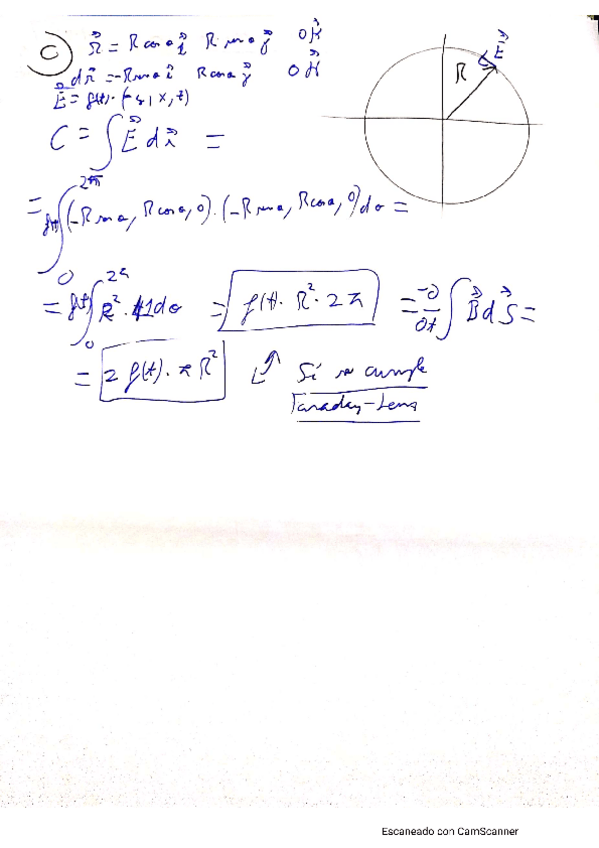 C) r⃗ = R cos θ i⃗ R sen θ j⃗ 0 k⃗
dr⃗ = -R sen θ i⃗ R cos θ j⃗ 0 k⃗
E⃗ = f(t)·(-y, x, t)
C = ∫ E⃗ dr⃗ =
R E⃗
= f(t) ∫₀^2π (-R sen θ, R cos θ, 0)·(-R sen θ, R cos θ, 0) dθ =
= f(t) ∫₀^2π R²·1 dθ = f(t)·R²·2π = -∂/∂t ∫ B⃗ dS⃗ =
= 2 f(t)·πR² Sí se cumple
Faraday-Lenz
Escaneado con CamScanner